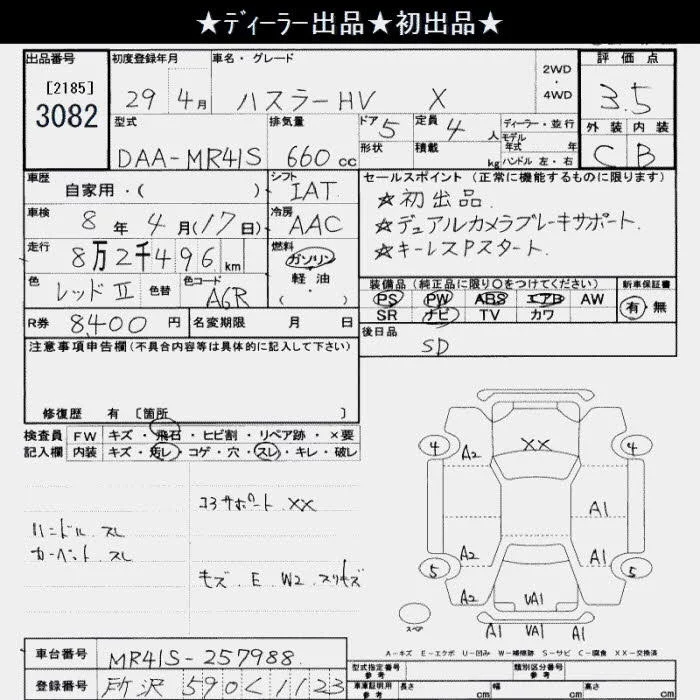 ★ディーラー出品★初出品★
出品番号 初度登録年月 車名・グレード 評価点
[2185]
3082
29 4月 ハスラーHV X 2WD・4WD 3.5
型式 排気量 ドア 5 定員 4人 ディーラー・並行 外装 内装
モデル年式 年
DAA-MR41S 660cc 形状 積載 kg ハンドル 左・右 C B
車歴 シフト セールスポイント(正常に機能するものに限ります)
自家用・( ) IAT ★初出品.
車検 8年 4月(17日) 冷房 AAC ★デュアルカメラブレーキサポート.
走行 8万2千496km 燃料 ガソリン 軽油 ( ・ ) ★キーレスPスタート.
色 レッドⅡ 色替 色コード A6R
装備品(純正品に限り○をつけてください) 新車保証書
PS PW ABS エアB AW 有・無
SR ナビ TV カワ
R券 8400円 名変期限 月 日
後日品 SD
注意事項申告欄(不具合内容等は具体的に記入して下さい)
修復歴 有 〔箇所 〕
検査員 FW キズ・飛石・ヒビ割・リペア跡・×要
記入欄 内装 キズ・汚レ・コゲ・穴・スレ・キレ・破レ
コアサポート.XX
ハンドル.スレ
カーペット.スレ
キズ.E.W2.スリキズ
4 A2 XX 4
A1
5 A2 A1 5
A2 UA1 A1
スペア A1 UA1 A1
A-キズ E-エクボ U-凹み W-補修跡 S-サビ C-腐食 XX-交換済
車台番号 MR41S-257988
登録番号 所沢 590 く 1123
型式指定番号参考 類別区分番号参考
車庫証明用参考 長さ cm 幅 cm 高さ cm